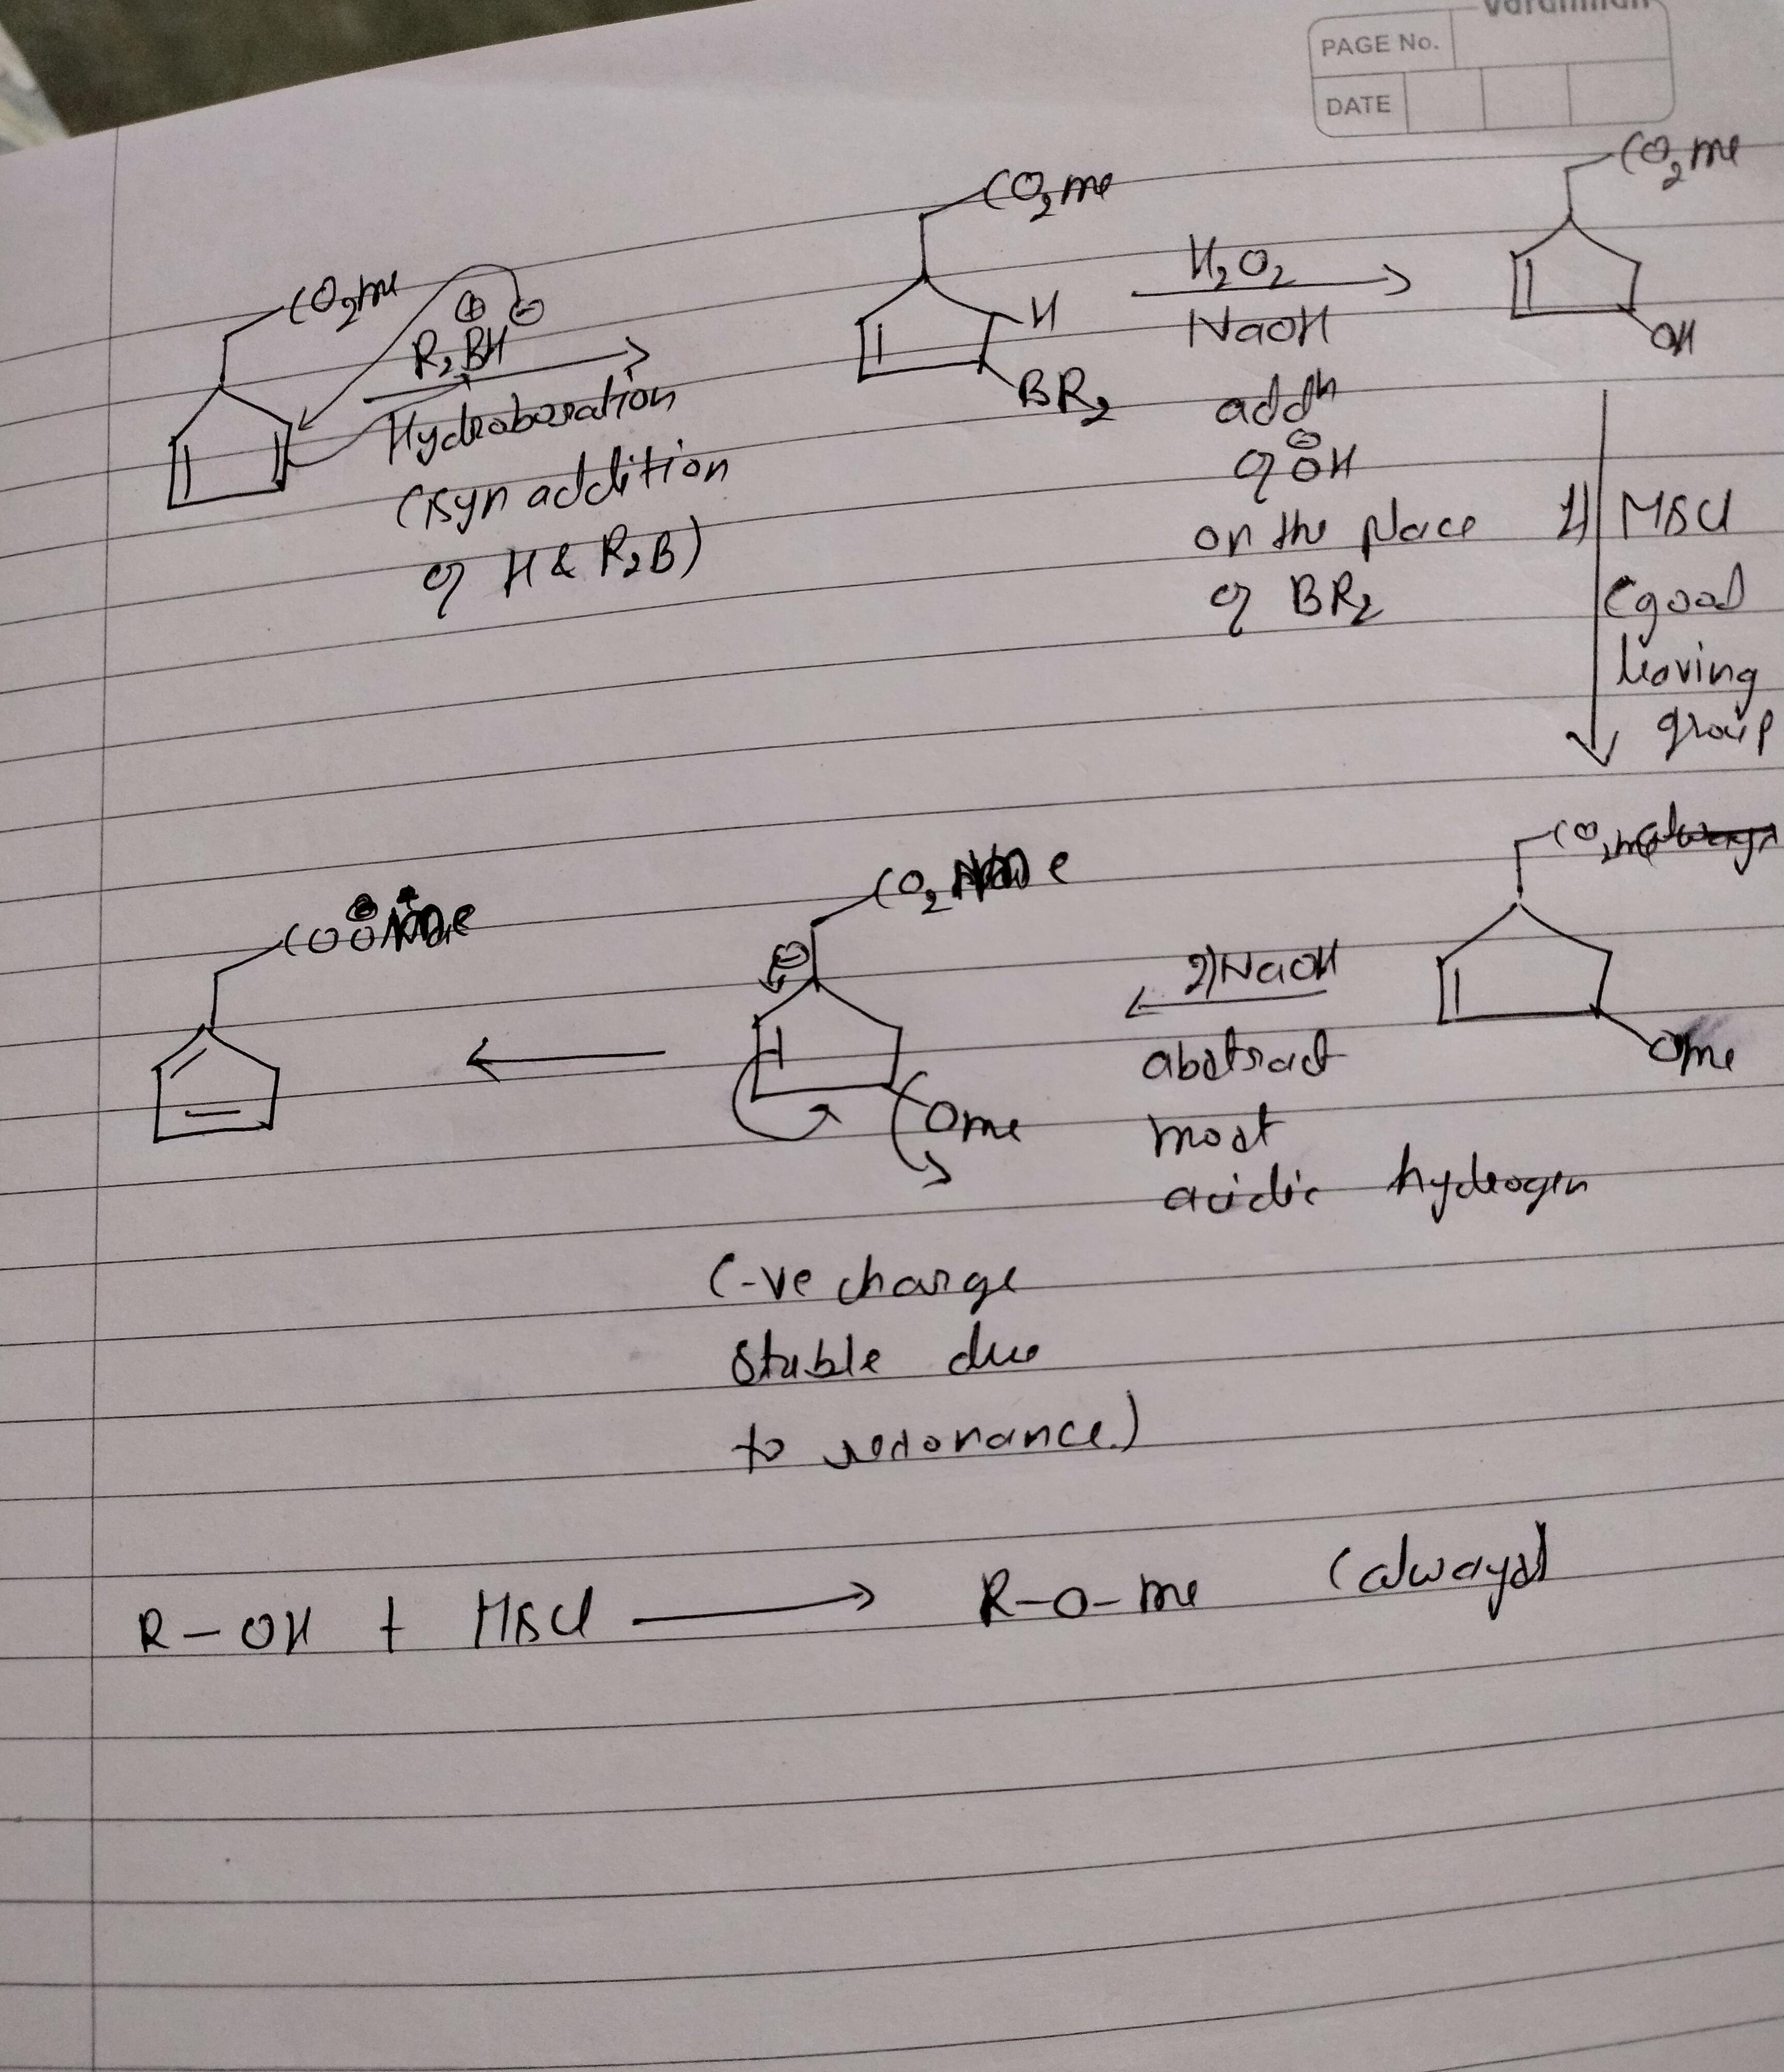 PAGE No.
DATE
CO2me
R2BH
⊕ ⊖
Hydroboration
(syn addition
of H & R2B)
CO2me
H
BR2
H2O2
NaOH
addn
of OH
on the place
of BR2
CO2me
OH
1) MsCl
(good
leaving
group
Ome
2) NaOH
abstract
most
acidic hydrogen
CO2
⊖
Ome
(-ve charge
stable due
to resonance.)
COO
R-OH + MsCl → R-O-me (always)